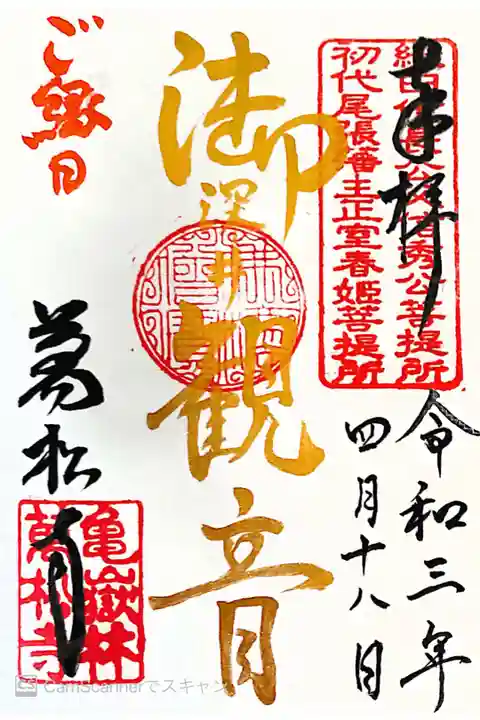 奉拝
織田信長公父信秀公菩提所
初代尾張藩主正室春姫菩提所
令和三年
四月十八日
御深井観音
ご縁日
萬松寺
亀嶽林
萬松寺
CS CamScannerでスキャン